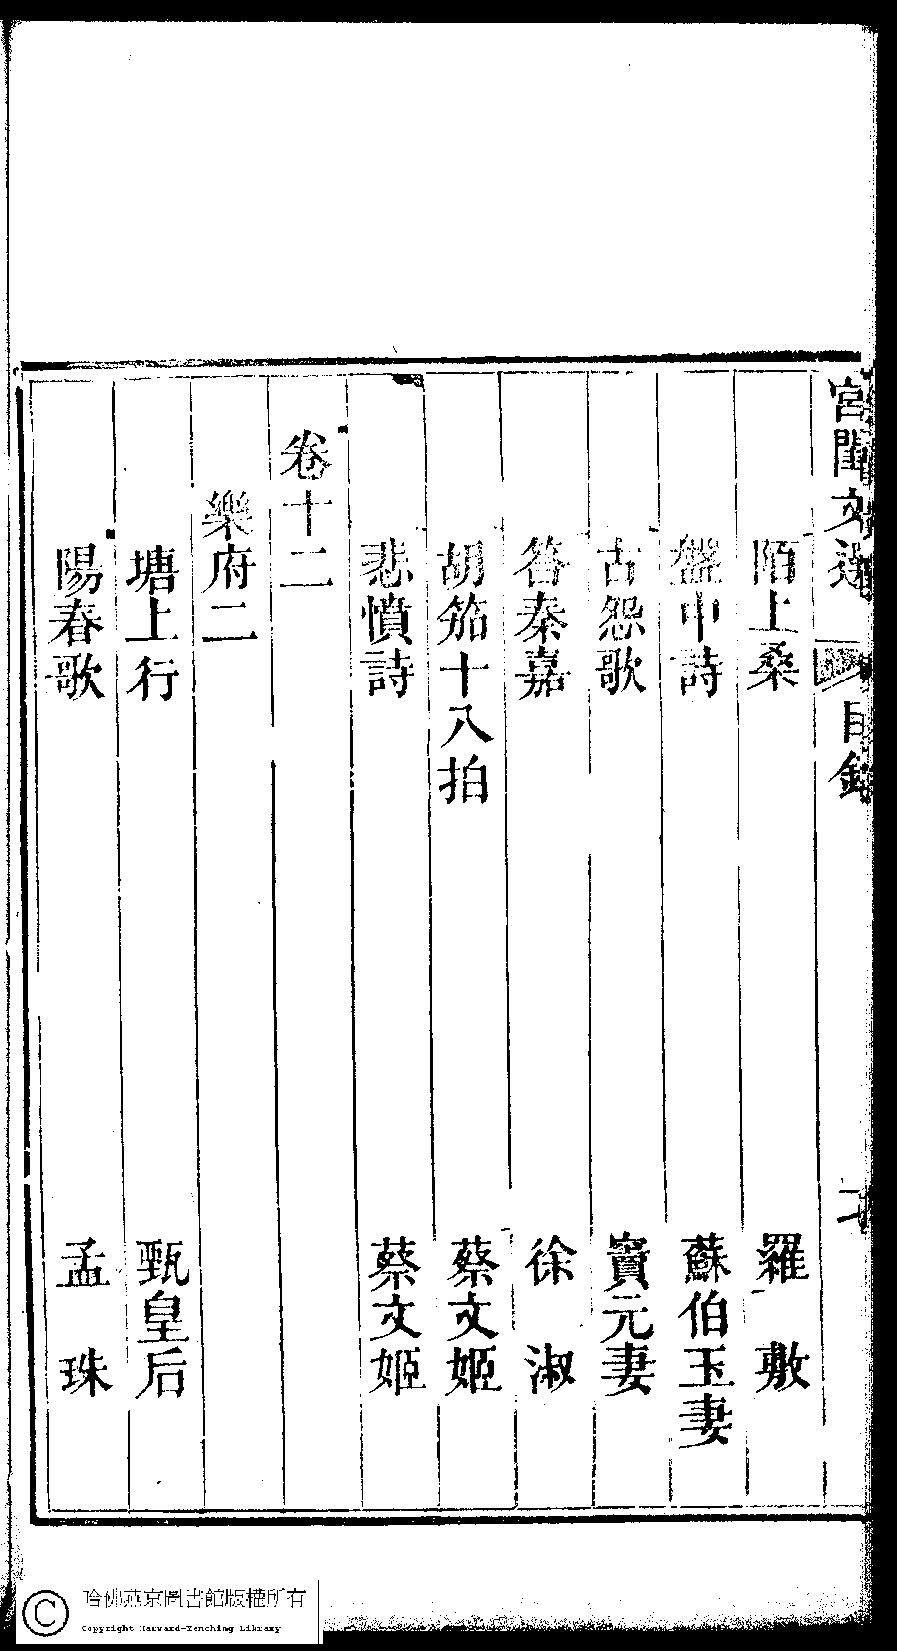 宮閨文選 目錄 二
陌上桑 羅敷
盤中詩 蘇伯玉妻
古怨歌 竇元妻
答秦嘉 徐淑
胡笳十八拍 蔡文姬
悲憤詩 蔡文姬
卷十二
樂府二
塘上行 甄皇后
陽春歌 孟珠
哈佛燕京圖書館版權所有
Copyright Harvard-Yenching Library